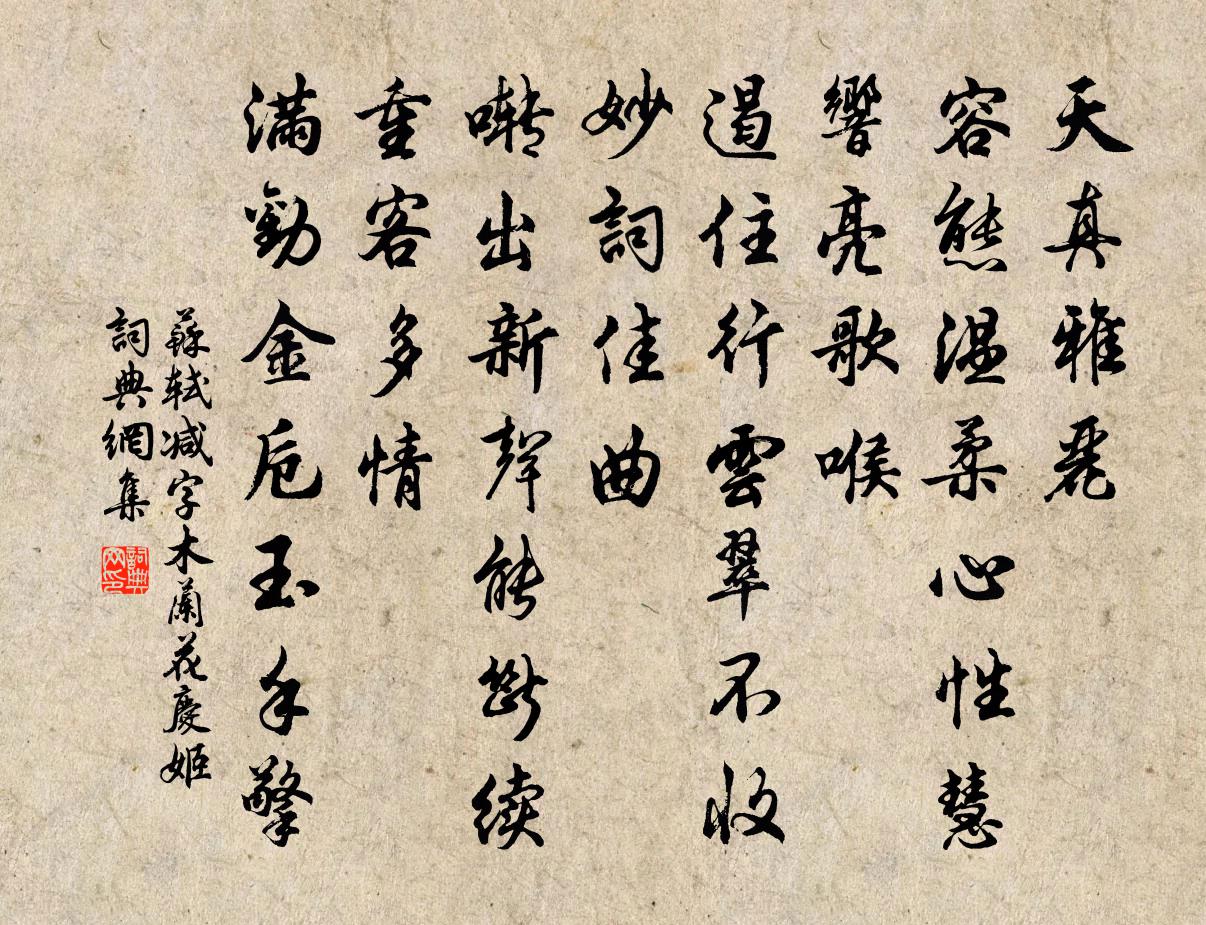 天真雅麗
容態温柔心性慧
響亮歌喉
遏住行雲翠不收
妙詞佳曲
囀出新聲能斷续
重客多情
滿勸金卮玉手擎
蘇軾减字木蘭花慶姬
詞典網集
詞典网印